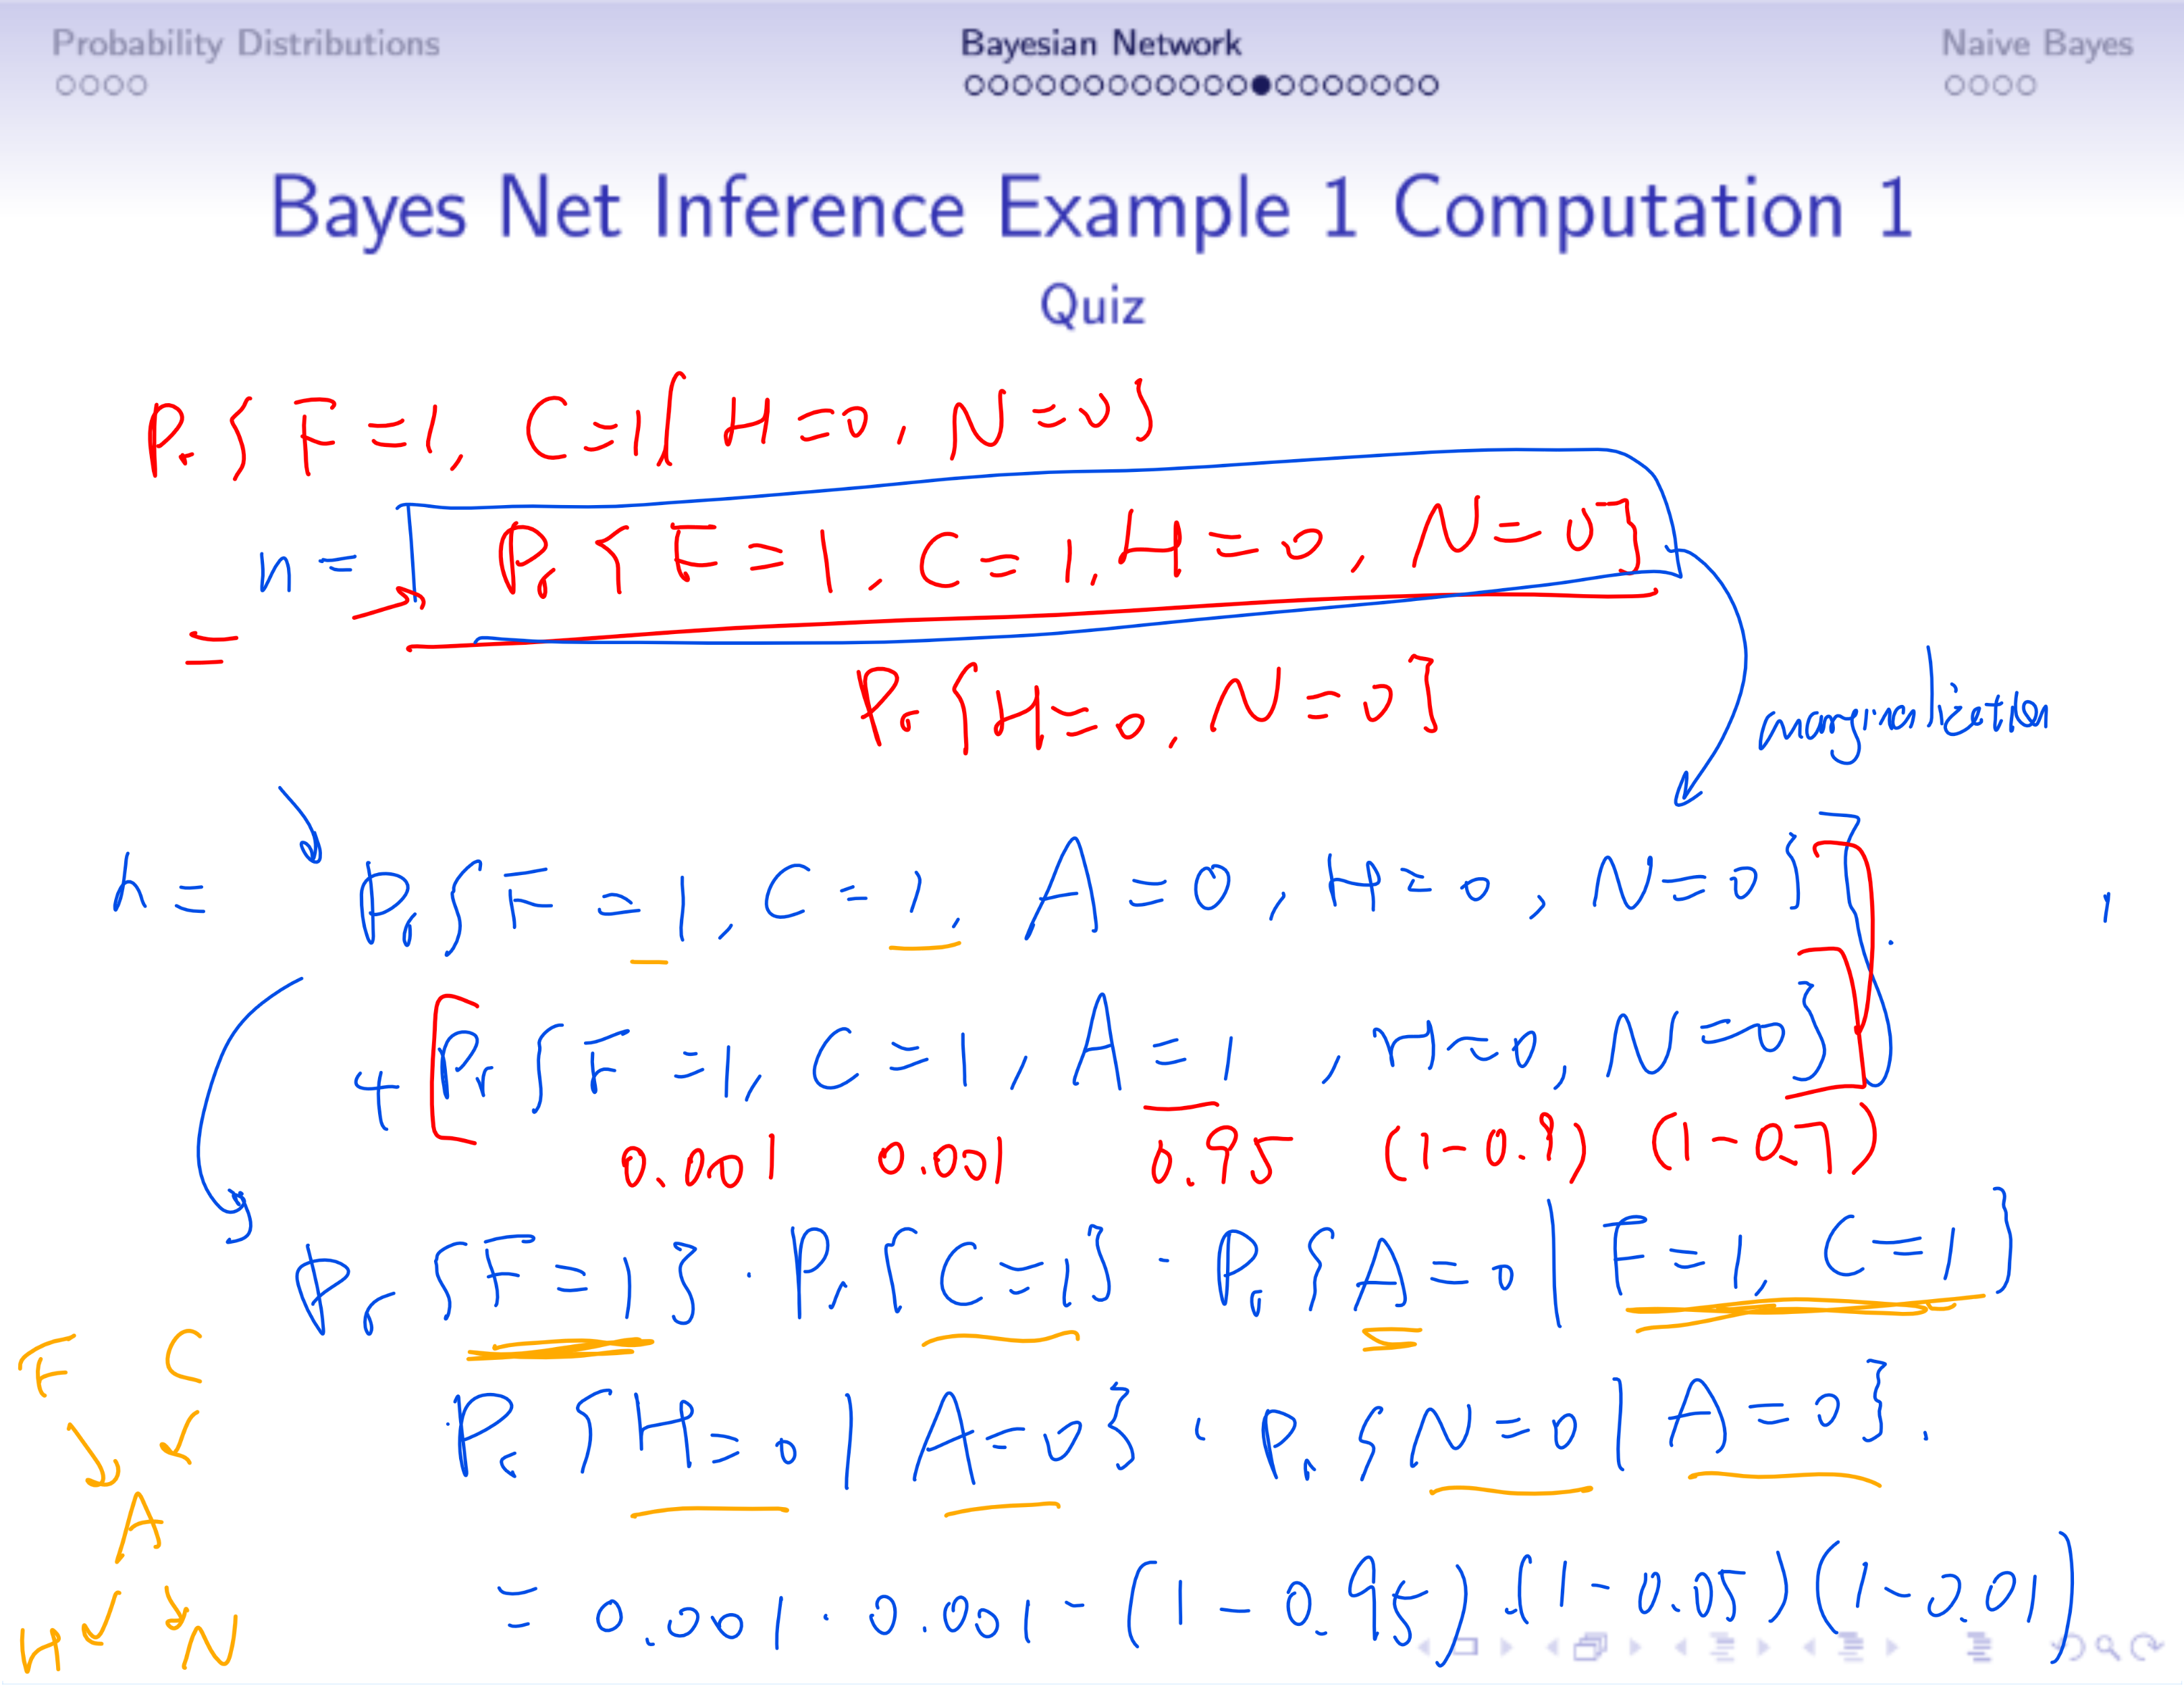 Probability Distributions Bayesian Network Naive Bayes
Bayes Net Inference Example 1 Computation 1
Quiz
Pr { F = 1, C = 1 | H = 0, N = 0 }
n = Pr { F = 1, C = 1, H = 0, N = 0 }
=
Pr { H = 0, N = 0 }
marginalization
n = Pr { F = 1, C = 1, A = 0, H = 0, N = 0 }
+ [ Pr { F = 1, C = 1, A = 1, H = 0, N = 0 } ]
0.001 0.001 0.95 (1 - 0.9) (1 - 0.7)
Pr { F = 1 } · Pr { C = 1 } · Pr { A = 0 | F = 1, C = 1 }
· Pr { H = 0 | A = 0 } · Pr { N = 0 | A = 0 }.
= 0.001 · 0.001 · (1 - 0.95) · (1 - 0.05) (1 - 0.01)
F C
A
H N